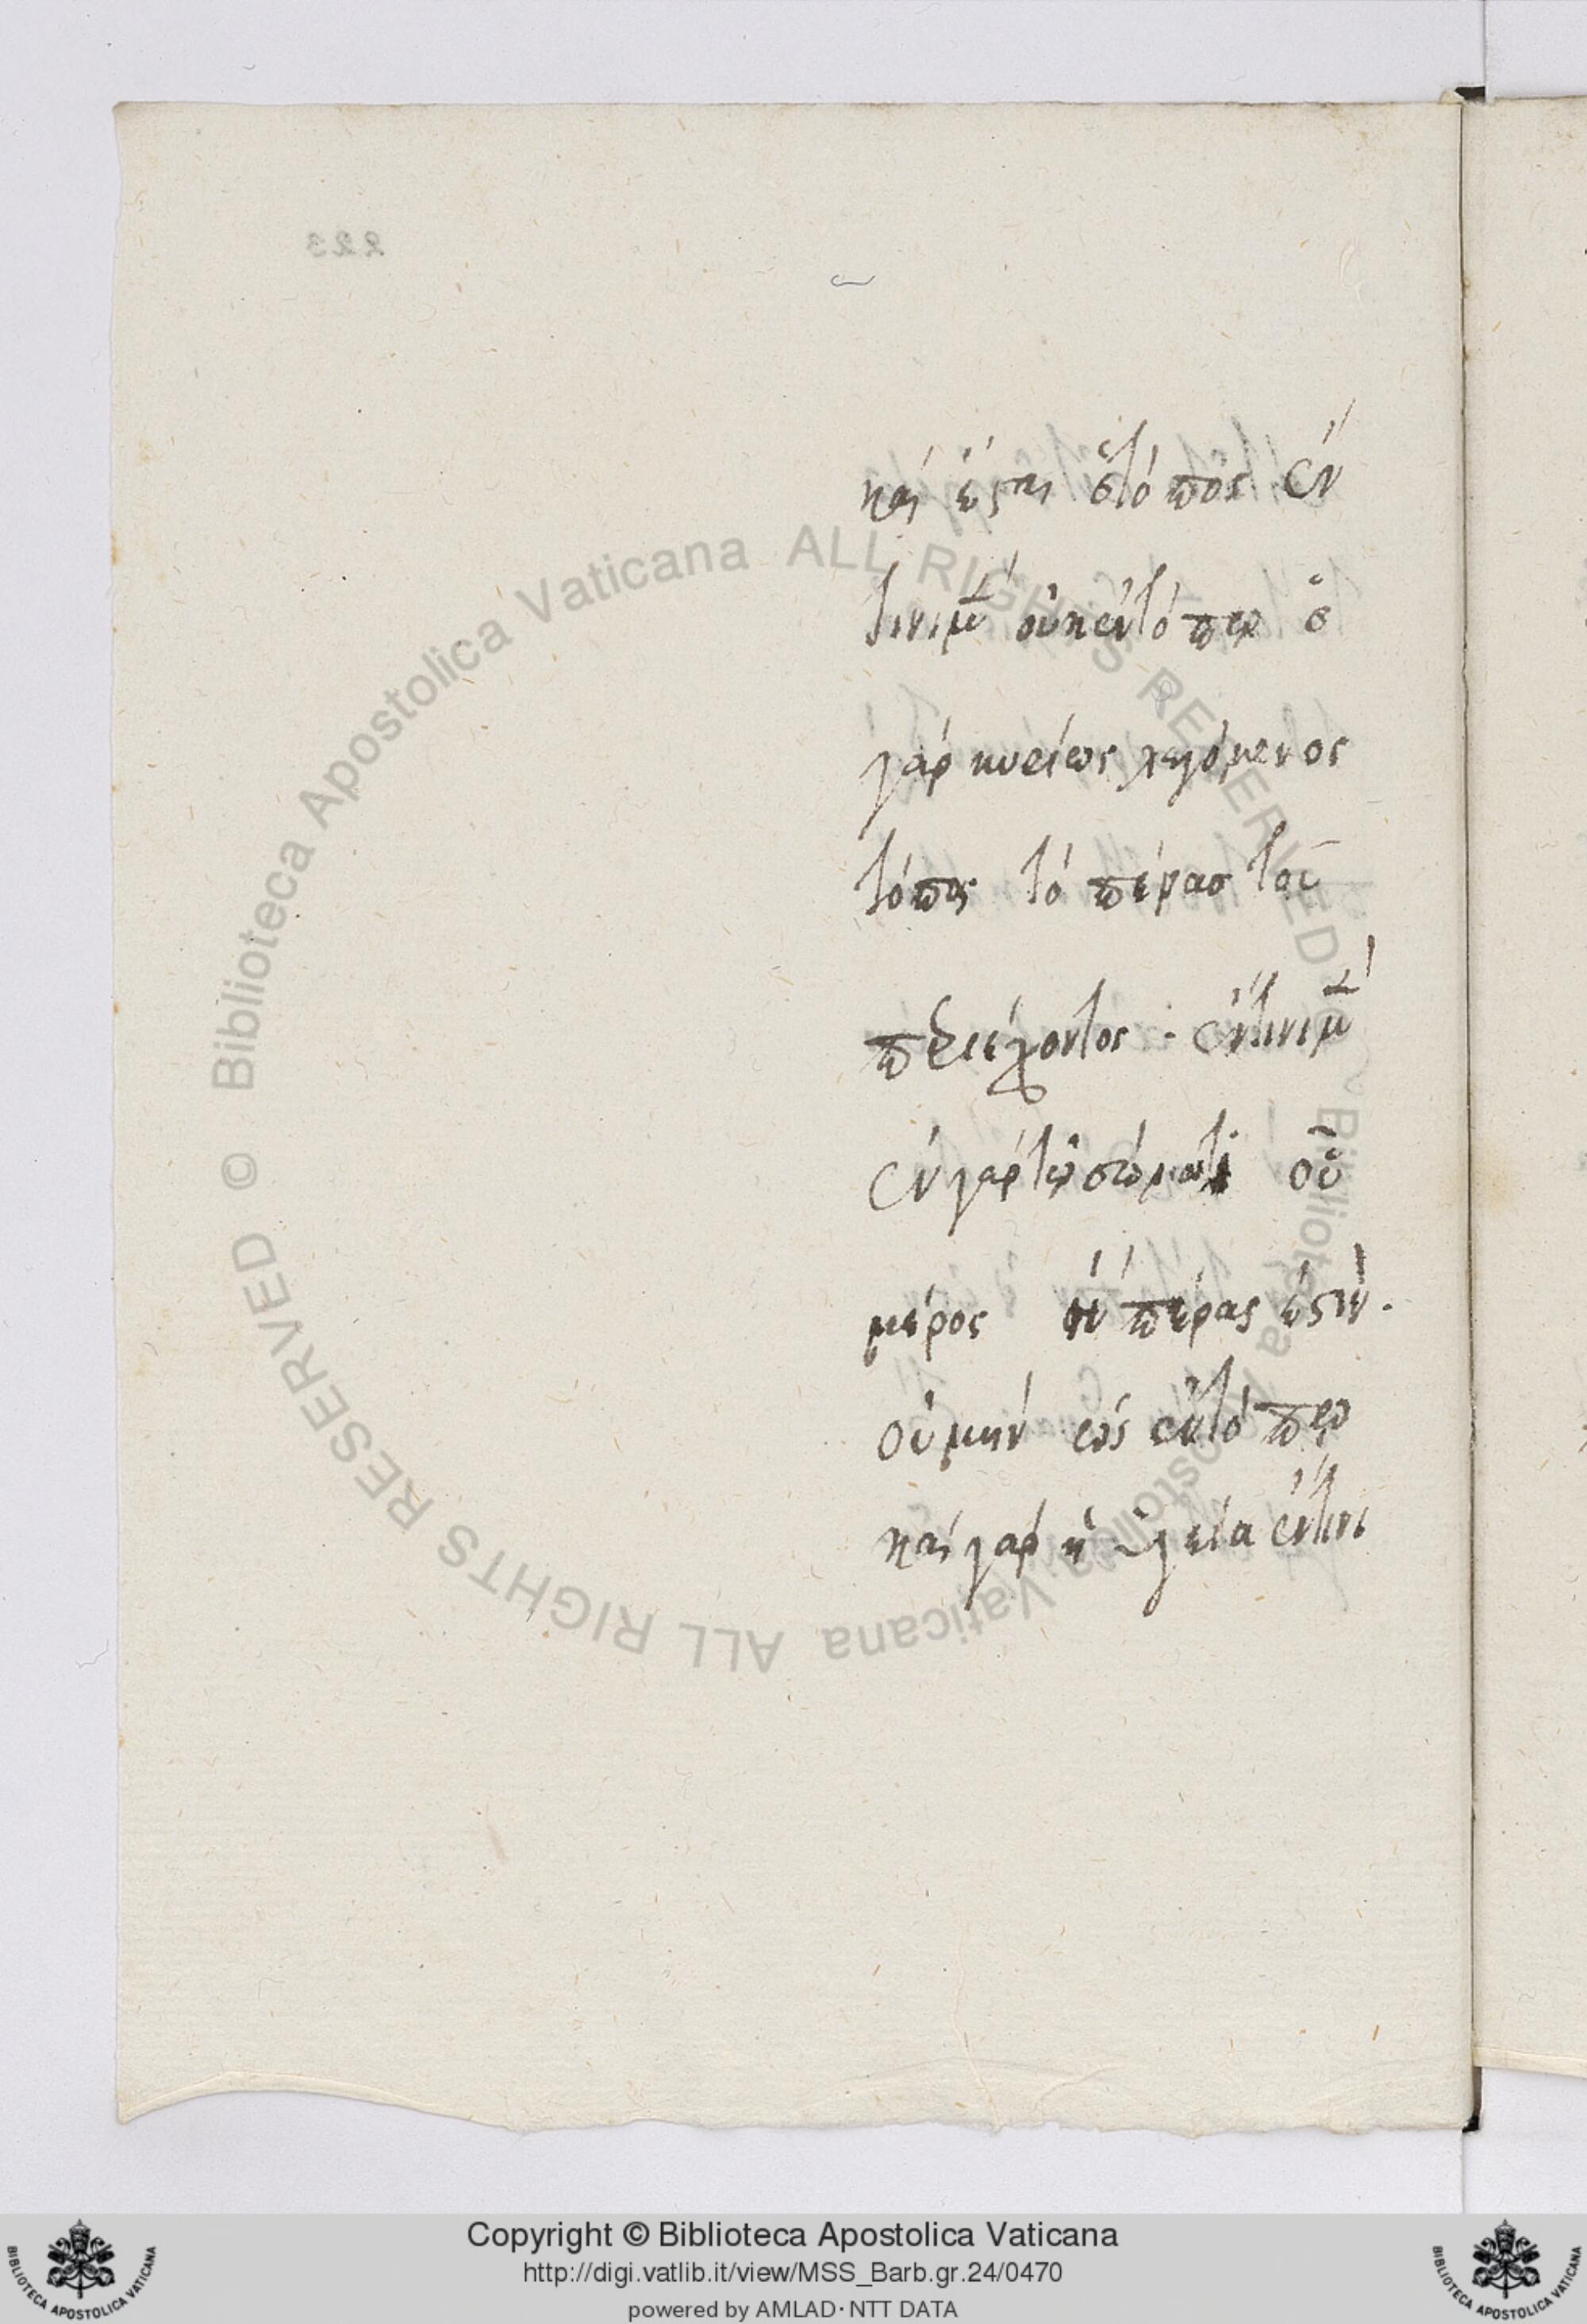 καὶ ἔσται ὁ τόπος ἔν
τινι μ(ὲν) οὐκ ἐν τόπῳ ὁ
γὰρ κυρίως λεγόμενος
τόπος τὸ πέρασ τοῦ
περιέχοντος · ἔν τινι μ(ὲν)
ἐν γὰρ τῷ σώματι οὗ
μέρος ἢ πέρας ἐστιν.
οὐ μὴν ὡς ἐν τόπῳ
καὶ γὰρ ἡ ὑγεία ἔν τινι
223
© Biblioteca Apostolica Vaticana ALL RIGHTS RESERVED © Biblioteca Apostolica Vaticana ALL RIGHTS RESERVED
Copyright © Biblioteca Apostolica Vaticana
http://digi.vatlib.it/view/MSS_Barb.gr.24/0470
powered by AMLAD·NTT DATA
BIBLIOTECA APOSTOLICA VATICANA
BIBLIOTECA APOSTOLICA VATICANA